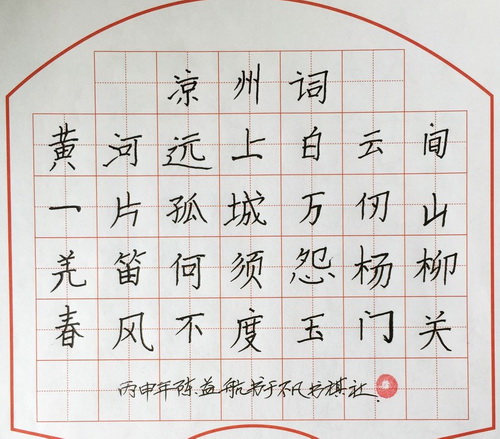 凉州词
黄河远上白云间
一片孤城万仞山
羌笛何须怨杨柳
春风不度玉门关
丙申年陈益航书于不凡书棋社